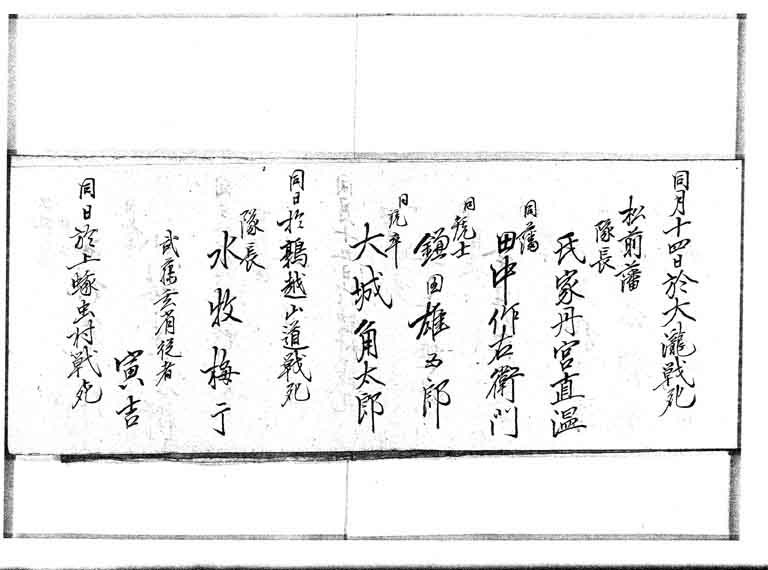 同月十四日於大瀧戦死
松前藩
隊長
氏家丹宮直温
同藩
田中作右衛門
同銃士
鎌田雄五郎
同銃卒
大城角太郎
同日於鶉越山道戦死
隊長
水牧梅干
武藤玄省従者
寅吉
同日於上蝝虫村戦死